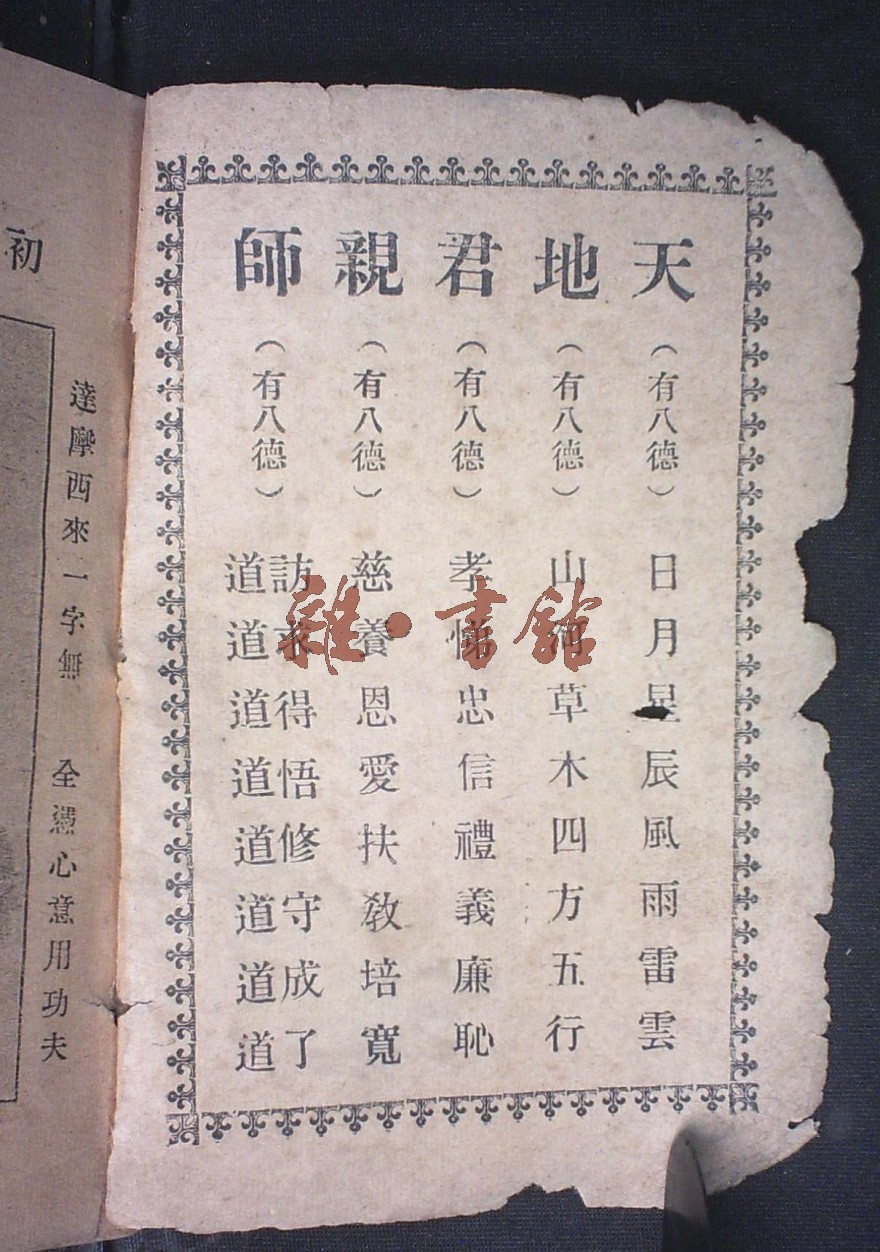 天（有八德）日月星辰風雨雷雲
地（有八德）山河草木四方五行
君（有八德）孝悌忠信禮義廉恥
親（有八德）慈養恩愛扶教培寬
師（有八德）訪道求道得道悟道修道守道成道了道
達摩西來一字無　全憑心意用功夫
初
雜·書館